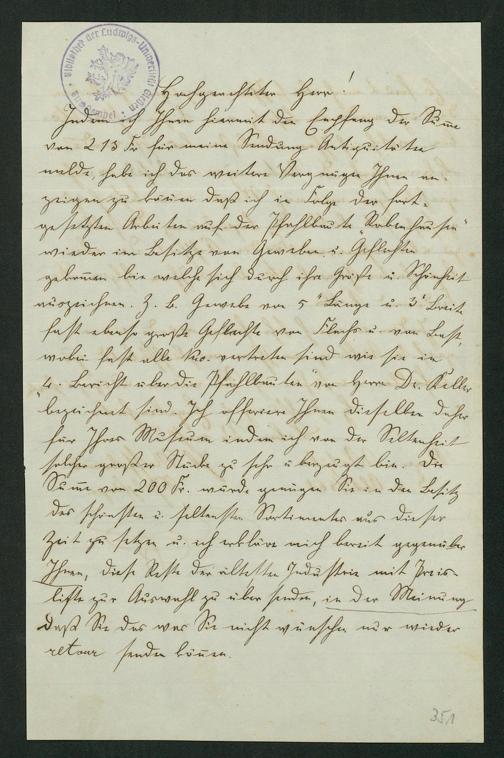 Bibliothek der Ludwigs-Universität Giessen
Hochgeachteter Herr!
Indem ich Ihnen hiermit den Empfang der Summe
von 213 Fr für meine Sendung Antiquitäten
melde, habe ich das weitere Vergnügen Ihnen an-
zeigen zu können daß ich in Folge der fort-
gesetzten Arbeiten auf der Pfahlbaute "Robenhausen"
wieder im Besitze von Geweben u. Geflechten
gekommen bin welche sich durch ihre Größe u. Schönheit
auszeichnen. Z. B. Gewebe von 5" Länge u 3" Breite
fast ebenso große Geflechte von Flachs u. von Bast,
wobei fast alle No. vertreten sind wie sie im
"4. Bericht über die Pfahlbauten" von Herrn Dr. Keller
bezeichnet sind. Ich offeriere Ihnen dieselben daher
für Ihres Museum indem ich von der Seltenheit
solcher großer Stücke zu sehr überzeugt bin. Die
Summe von 200 Fr. wurde genügen Sie in den Besitz
des schönsten u. seltensten Sortimentes aus dieser
Zeit zu setzen u. ich erkläre mich bereit gegenüber
Ihnen, diese Reste der ältesten Industrie mit Preis-
liste zur Auswahl zu über senden, in der Meinung
daß Sie das was Sie nicht wünschen nur wieder
retour senden können.
351